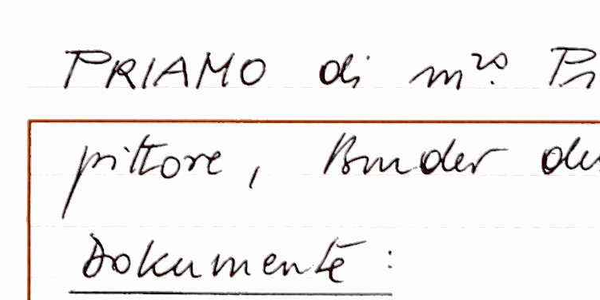 PRIAMO di mro. Pi
pittore, Bruder de
Dokumente: